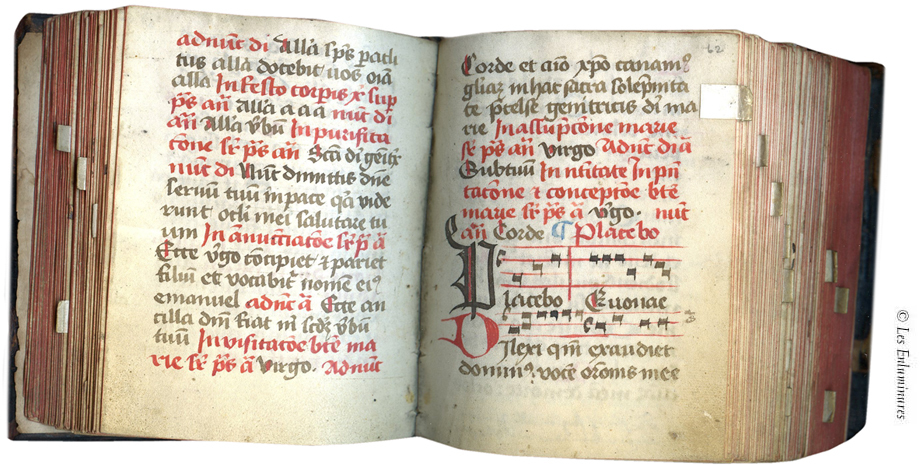 adnūc di Alla sp̄s pacli
tus alla docebit uos oīa
alla In festo corpis x̄ sup
p̄s an̄ Alla a a a nūc di
an̄ Alla v̄bū In purifica
cōne sr̄ p̄s an̄ Scā di gēitx
nūc di Nūc dimittis dnē
seruū tuū in pace qa vide
runt ocli mei salutare tu
um In annucciacōe sr̄ p̄ a
Ecce v̊go cōcipiet ⁊ pariet
filiū et vocabit̄ nomē eiꝰ
emanuel adnc̄ ā Ecce an
cilla dnī fiat m̄ scdȝ v̄bū
tuū In visitacōe btē ma
rie sr̄ p̄s ā Virgo. Adnūc
62
Corde et aīo xp̄o canamꝰ
gliaȝ in hac sacra solēpnita
te p̄celse genitricis di ma
rie In assūpcōne marie
sr̄ p̄s an̄ virgo Adnūc di ā
Subtuū In nītitate In pn̄
tacōne ⁊ concepcōe btē
marie sr̄ p̄s ā v̊go. nūc
an̄ Corde ¶ Placebo
Placebo Euouae
Dilexi qm̄ exaudiet
dominꝰ vocē orōnis mee
© Les Enluminures